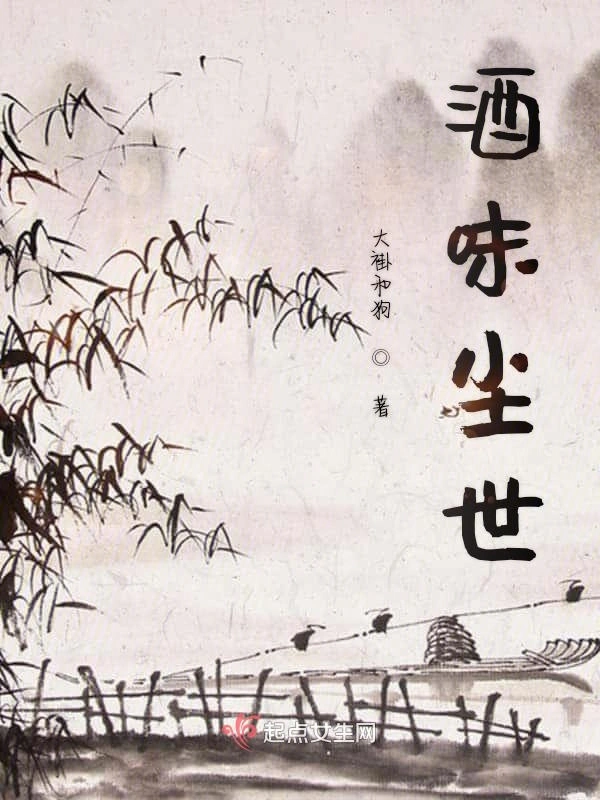 酒味尘世
大褂和狗 ◎ 著
起点女生网